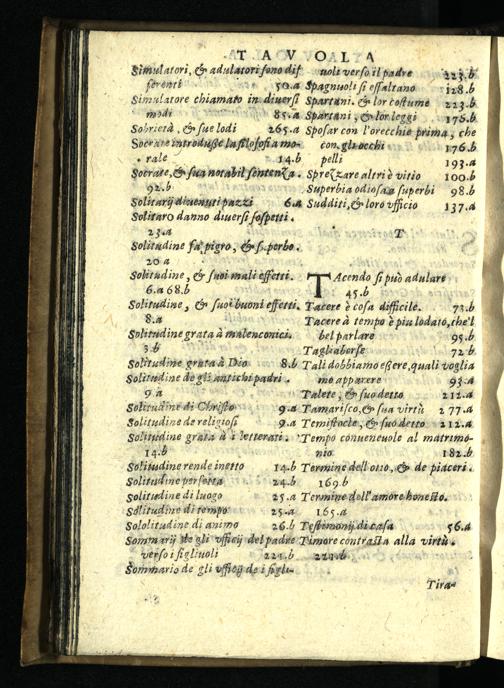 TAVOLA
Simulatori, & adulatori sono dif
ferenti 50.a
Simulatore chiamato in diuersi
modi 85.a
Sobrietà, & sue lodi 265.a
Socrate introdusse la filosofia mo-
rale 14.b
Socrate, & sua notabil sentenza.
92.b
Solitarij diuenuti pazzi 6.a
Solitaro danno diuersi sospetti.
23.a
Solitudine fa pigro, & superbo.
20.a
Solitudine, & suoi mali effetti.
6.a 68.b
Solitudine, & suoi buoni effetti.
8.a
Solitudine grata à malenconici.
3.b
Solitudine grata à Dio 8.b
Solitudine de gli antichi padri.
9.a
Solitudine di Christo 9.a
Solitudine de religiosi 9.a
Solitudine grata à i letterati.
14.b
Solitudine rende inetto 14.b
Solitudine perfetta 24.b
Solitudine di luogo 25.a
Solitudine di tempo 25.a
Sololitudine di animo 26.b
Sommarij de gli vfficij del padre
verso i figliuoli 221.b
Sommario de gli vfficij de i figli-
uoli verso il padre 223.b
Spagnuoli si essaltano 128.b
Spartani, & lor costume 223.b
Spartani, & lor leggi 176.b
Sposar con l'orecchie prima, che
con gli occhi 176.b
pelli 193.a
Sprezzare altri è vitio 100.b
Superbia odiosa a superbi 98.b
Sudditi, & loro vfficio 137.a
T
TAcendo si può adulare
45.b
Tacere è cosa difficile. 73.b
Tacere à tempo è piu lodato, che'l
bel parlare 95.b
Tagliaborse 72.b
Tali dobbiamo essere, quali voglia
mo apparere 93.a
Talete, & suo detto 212.a
Tamarisco, & sua virtù 277.a
Temistocle, & suo detto 212.a
Tempo conueneuole al matrimo-
nio 182.b
Termine dell'otio, & de piaceri.
169.b
Termine dell'amore honesto.
165.a
Testimonij di casa 56.a
Timore contrasta alla virtù.
221.b
Tira-